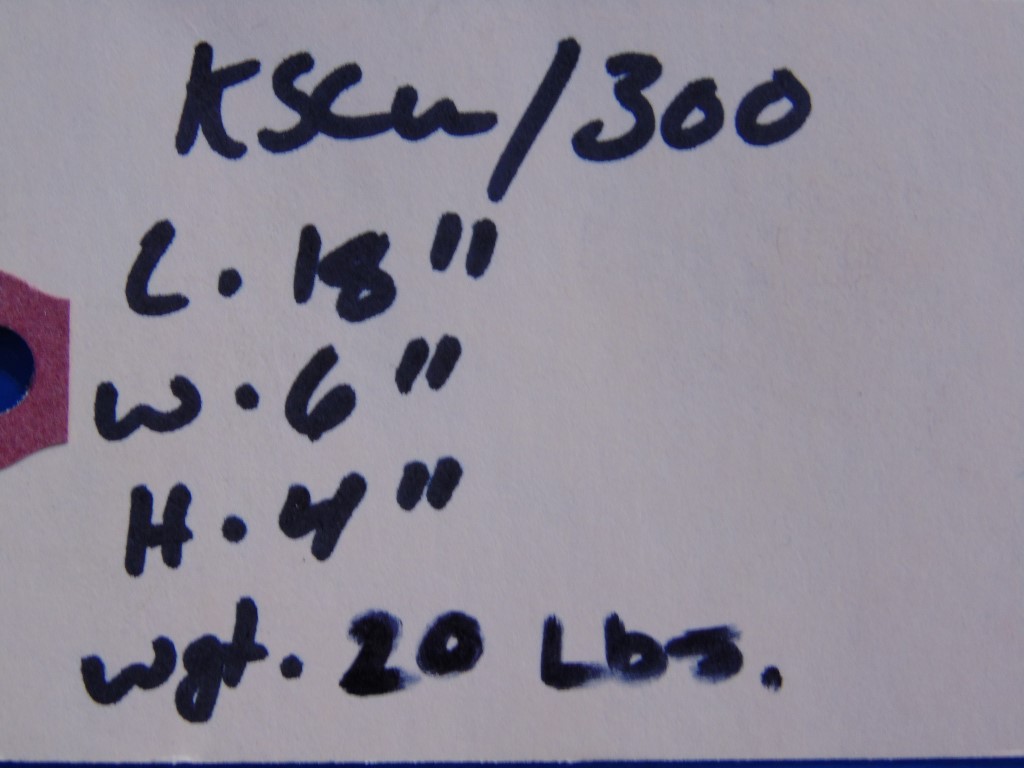 KSCU/300
L. 18"
W. 6"
H. 4"
wgt. 20 Lbs.